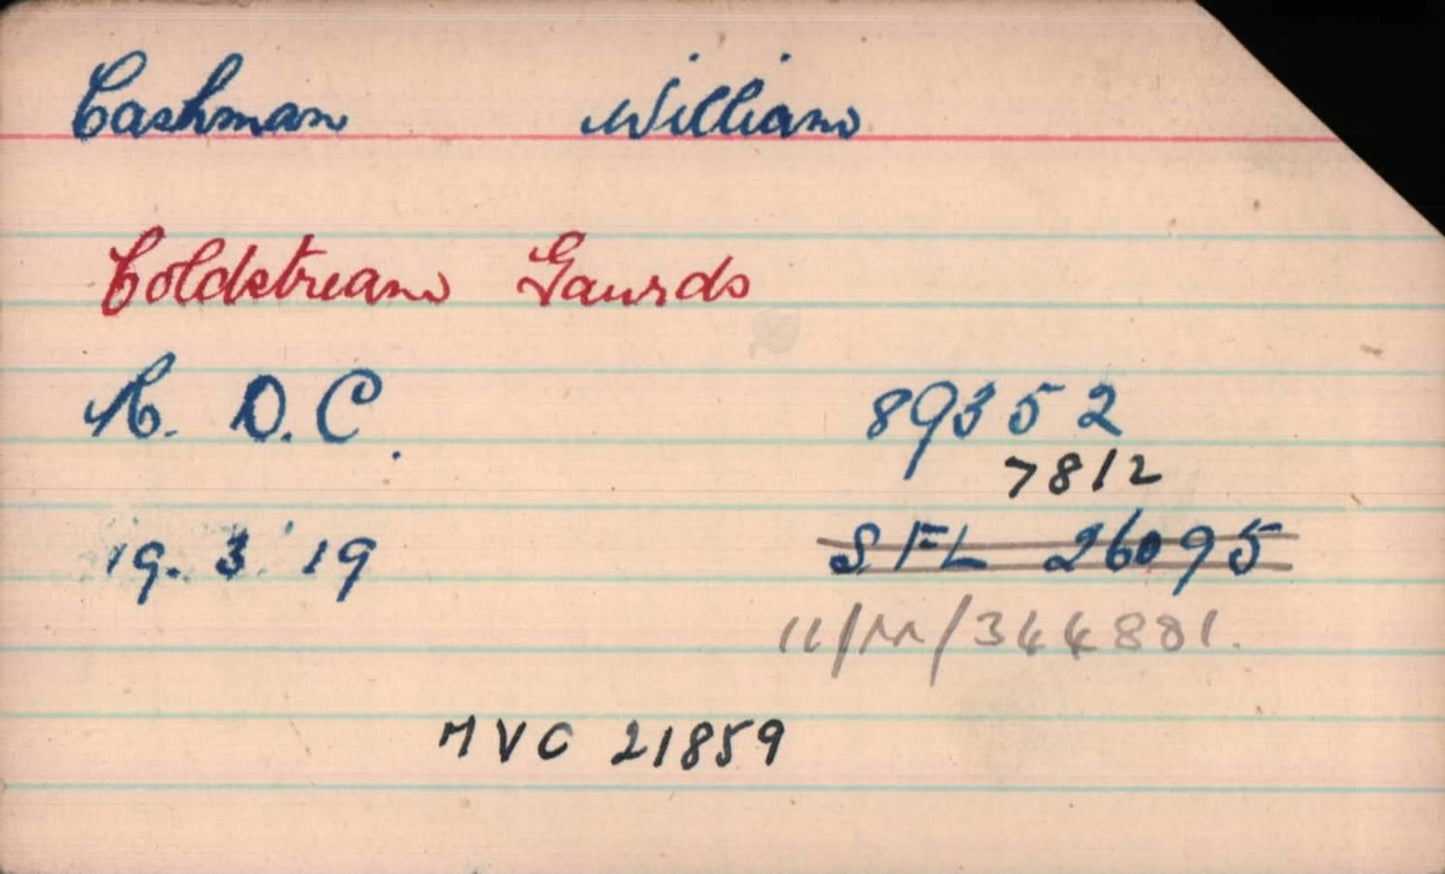 Cashman William
Coldstream Gaurds
N. D. C. 89352
7812
19. 3. 19 SFL 26095
11/M/344881.
MVC 21859